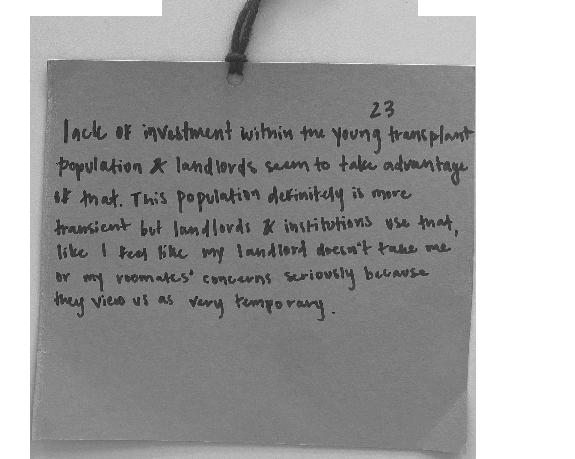 23
lack of investment within the young transplant
population & landlords seem to take advantage
of that. This population definitely is more
transient but landlords & institutions use that,
like I feel like my landlord doesn't take me
or my roomates' concerns seriously because
they view us as very temporary.